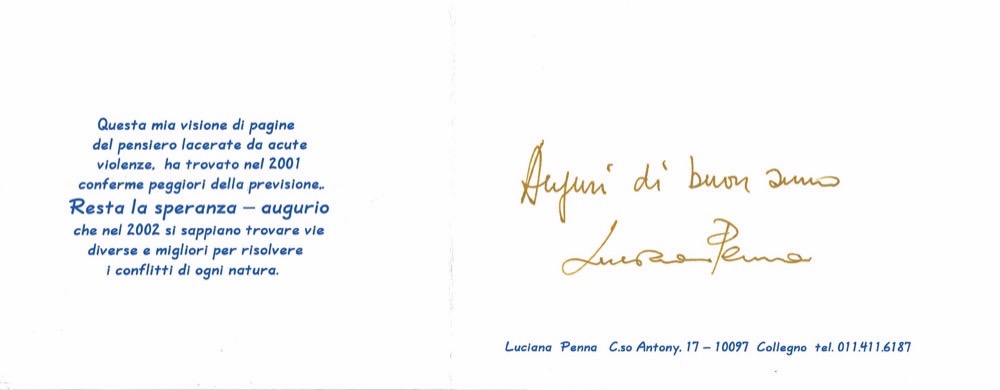 Questa mia visione di pagine
del pensiero lacerate da acute
violenze, ha trovato nel 2001
conferme peggiori della previsione..
Resta la speranza – augurio
che nel 2002 si sappiano trovare vie
diverse e migliori per risolvere
i conflitti di ogni natura.
Auguri di buon anno
Luciana Penna
Luciana Penna C.so Antony. 17 – 10097 Collegno tel. 011.411.6187